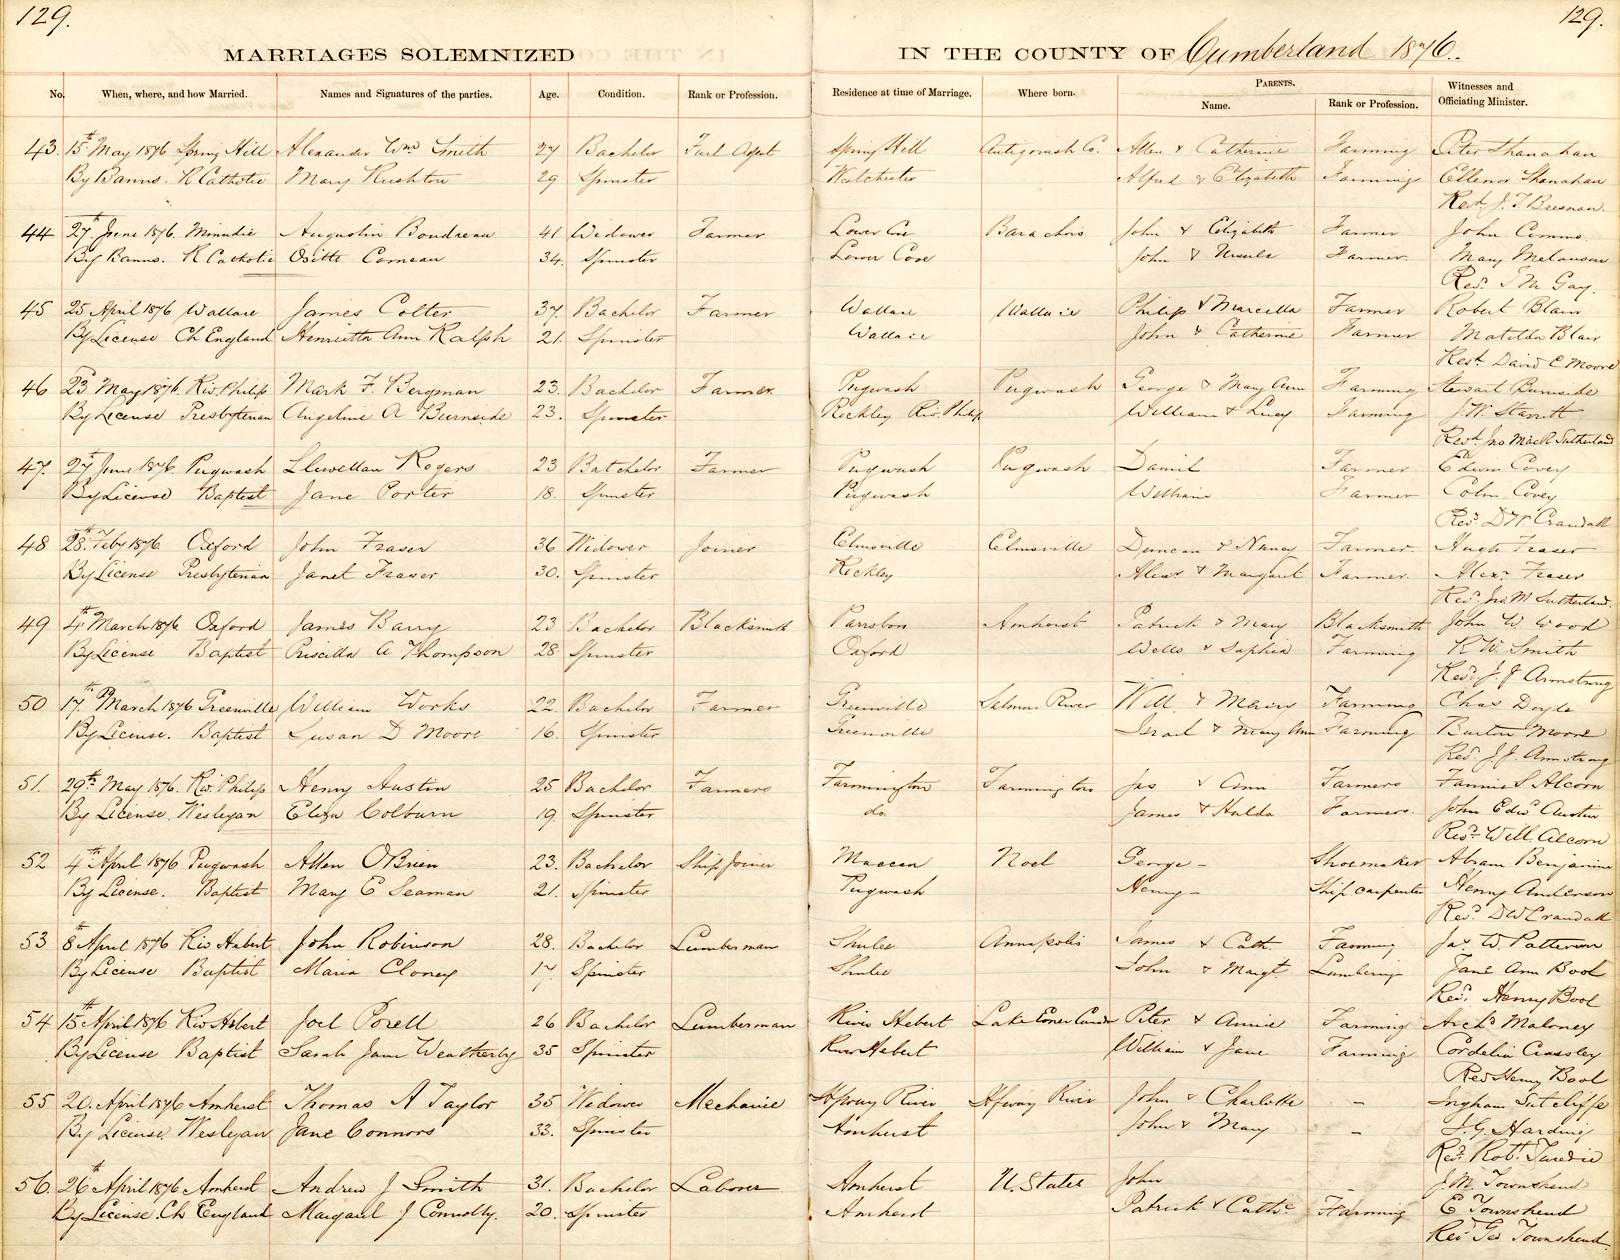 129.
129.
MARRIAGES SOLEMNIZED
IN THE COUNTY OF Cumberland 1876.
No. When, where, and how Married. Names and Signatures of the parties. Age. Condition. Rank or Profession. Residence at time of Marriage. Where born. PARENTS. Name. Rank or Profession. Witnesses and Officiating Minister.
43. 15th May 1876 Spring Hill Alexander Wm Smith 27 Bachelor Fuel Agent Spring Hill Antigonish Co. Allen & Catherine Farming Peter Shanahan
By Banns. R Catholic Mary Rushton 29 Spinster Westchester Alfred & Elizabeth Farming Ellenor Shanahan
Revd J. T Bresnan.
44 27th June 1876. Minudie Augustin Boudreau 41 Widower Farmer Lower Cove Barachois John & Elizabeth Farmer John Comms
By Banns. R Catholic Osithe Comeau 34. Spinster Lower Cove John & Farmer. Mary Melanson
Revd. T M Gay.
45 25 April 1876 Wallace James Colter 37. Bachelor Farmer Wallace Wallace Philip & Marcella Farmer Robert Blair
By License Ch England Henrietta Ann Ralph 21. Spinster Wallace John & Catherine Farmer Matilda Blair
Revd. David C Moore
46 23 May 1876. Riv Philip Mark F. Bergman 23. Bachelor Farmer Pugwash Pugwash George & Mary Ann Farming Stewart Burnside
By License Presbyterian Angeline A Burnside 23. Spinster Rockley Riv. Philip William & Lucy Farming J. W. Starratt
Revd. Jno MacK Sutherland
47. 27th June 1876. Pugwash Llewellan Rogers 23 Batchelor Farmer Pugwash Pugwash Daniel Farmer Edwin Covey
By License Baptist Jane Porter 18. Spinster Pugwash William Farmer Colin Covey
Revd. D W. Crandall
48 28th. Feby 1876 Oxford John Fraser 36 Widower Joiner Elmsville Elmsville Duncan & Nancy Farmer. Hugh Fraser
By License Presbyterian Janet Fraser 30. Spinster Rockley Alexr & Margaret Farmer. Alexr Fraser
Revd. Jno M Sutherland.
49 4th March 1876 Oxford James Barry 23 Bachelor Blacksmith Parrsboro Amherst Patrick & Mary Blacksmith John W Wood
By License Baptist Priscilla A Thompson 28 Spinster Oxford Wells & Sophia Farming R W. Smith
Revd J. J Armstrong
50 17th. March 1876 Greenville William Works 22 Bachelor Farmer Greenville Salmon River Will. & Mary Farming Chas Doyle
By License. Baptist Susan D Moore 16. Spinster Greenville Israel & Mary Ann Farming Burton Moore
Revd. J. J. Armstrong
51. 29th May 1876. Riv. Philip Henry Austin 25 Bachelor Farmers Farmington Farmington Jas & Ann Farmers Fannie S. Alcorn
By License. Wesleyan Eliza Colburn 19. Spinster do. James & Hulda Farmers. John Edwd Austin
Revd. Will. Alcorn
52 4th April 1876 Pugwash Allen O'Brien 23. Bachelor Ship Joiner Maccan Noel George - Shoemaker Abram Benjamin
By License. Baptist Mary E Seaman 21. Spinster Pugwash Henry - Ship Carpenter Henry Anderson
Revd. D W Crandall
53 8th April 1876 Riv Hebert John Robinson 28. Bachelor Lumberman Shulee Annapolis James & Cath. Farming Jas. W. Patterson
By License Baptist Maria Cloney 17. Spinster Shulee John & Margt. Lumbering Jane Ann Bool
Revd. Henry Bool
54 15th April 1876 Riv Hebert Joel Porell 26 Bachelor Lumberman River Hebert Lake Canada Peter & Annie Farming Archd Maloney
By License Baptist Sarah Jane Weatherby 35 Spinster River Hebert William & Jane Farming Cordelia Crossley
Revd Henry Bool
55 20. April 1876 Amherst Thomas A Taylor 35 Widower Mechanic Hfway River Hfway River John & Charlotte - Ingham Sutcliffe
By License. Wesleyan Jane Connors 33. Spinster Amherst John & Mary - J. G. Harding
Revd. Robt. Tweedie
56. 26th April 1876 Amherst Andrew J Smith 31. Bachelor Laborer Amherst U. States John - J. M. Townshend
By License. Ch England Margaret J Connolly. 20. Spinster Amherst Patrick & Cathe Farming E Townshend
Revd Geo Townshend